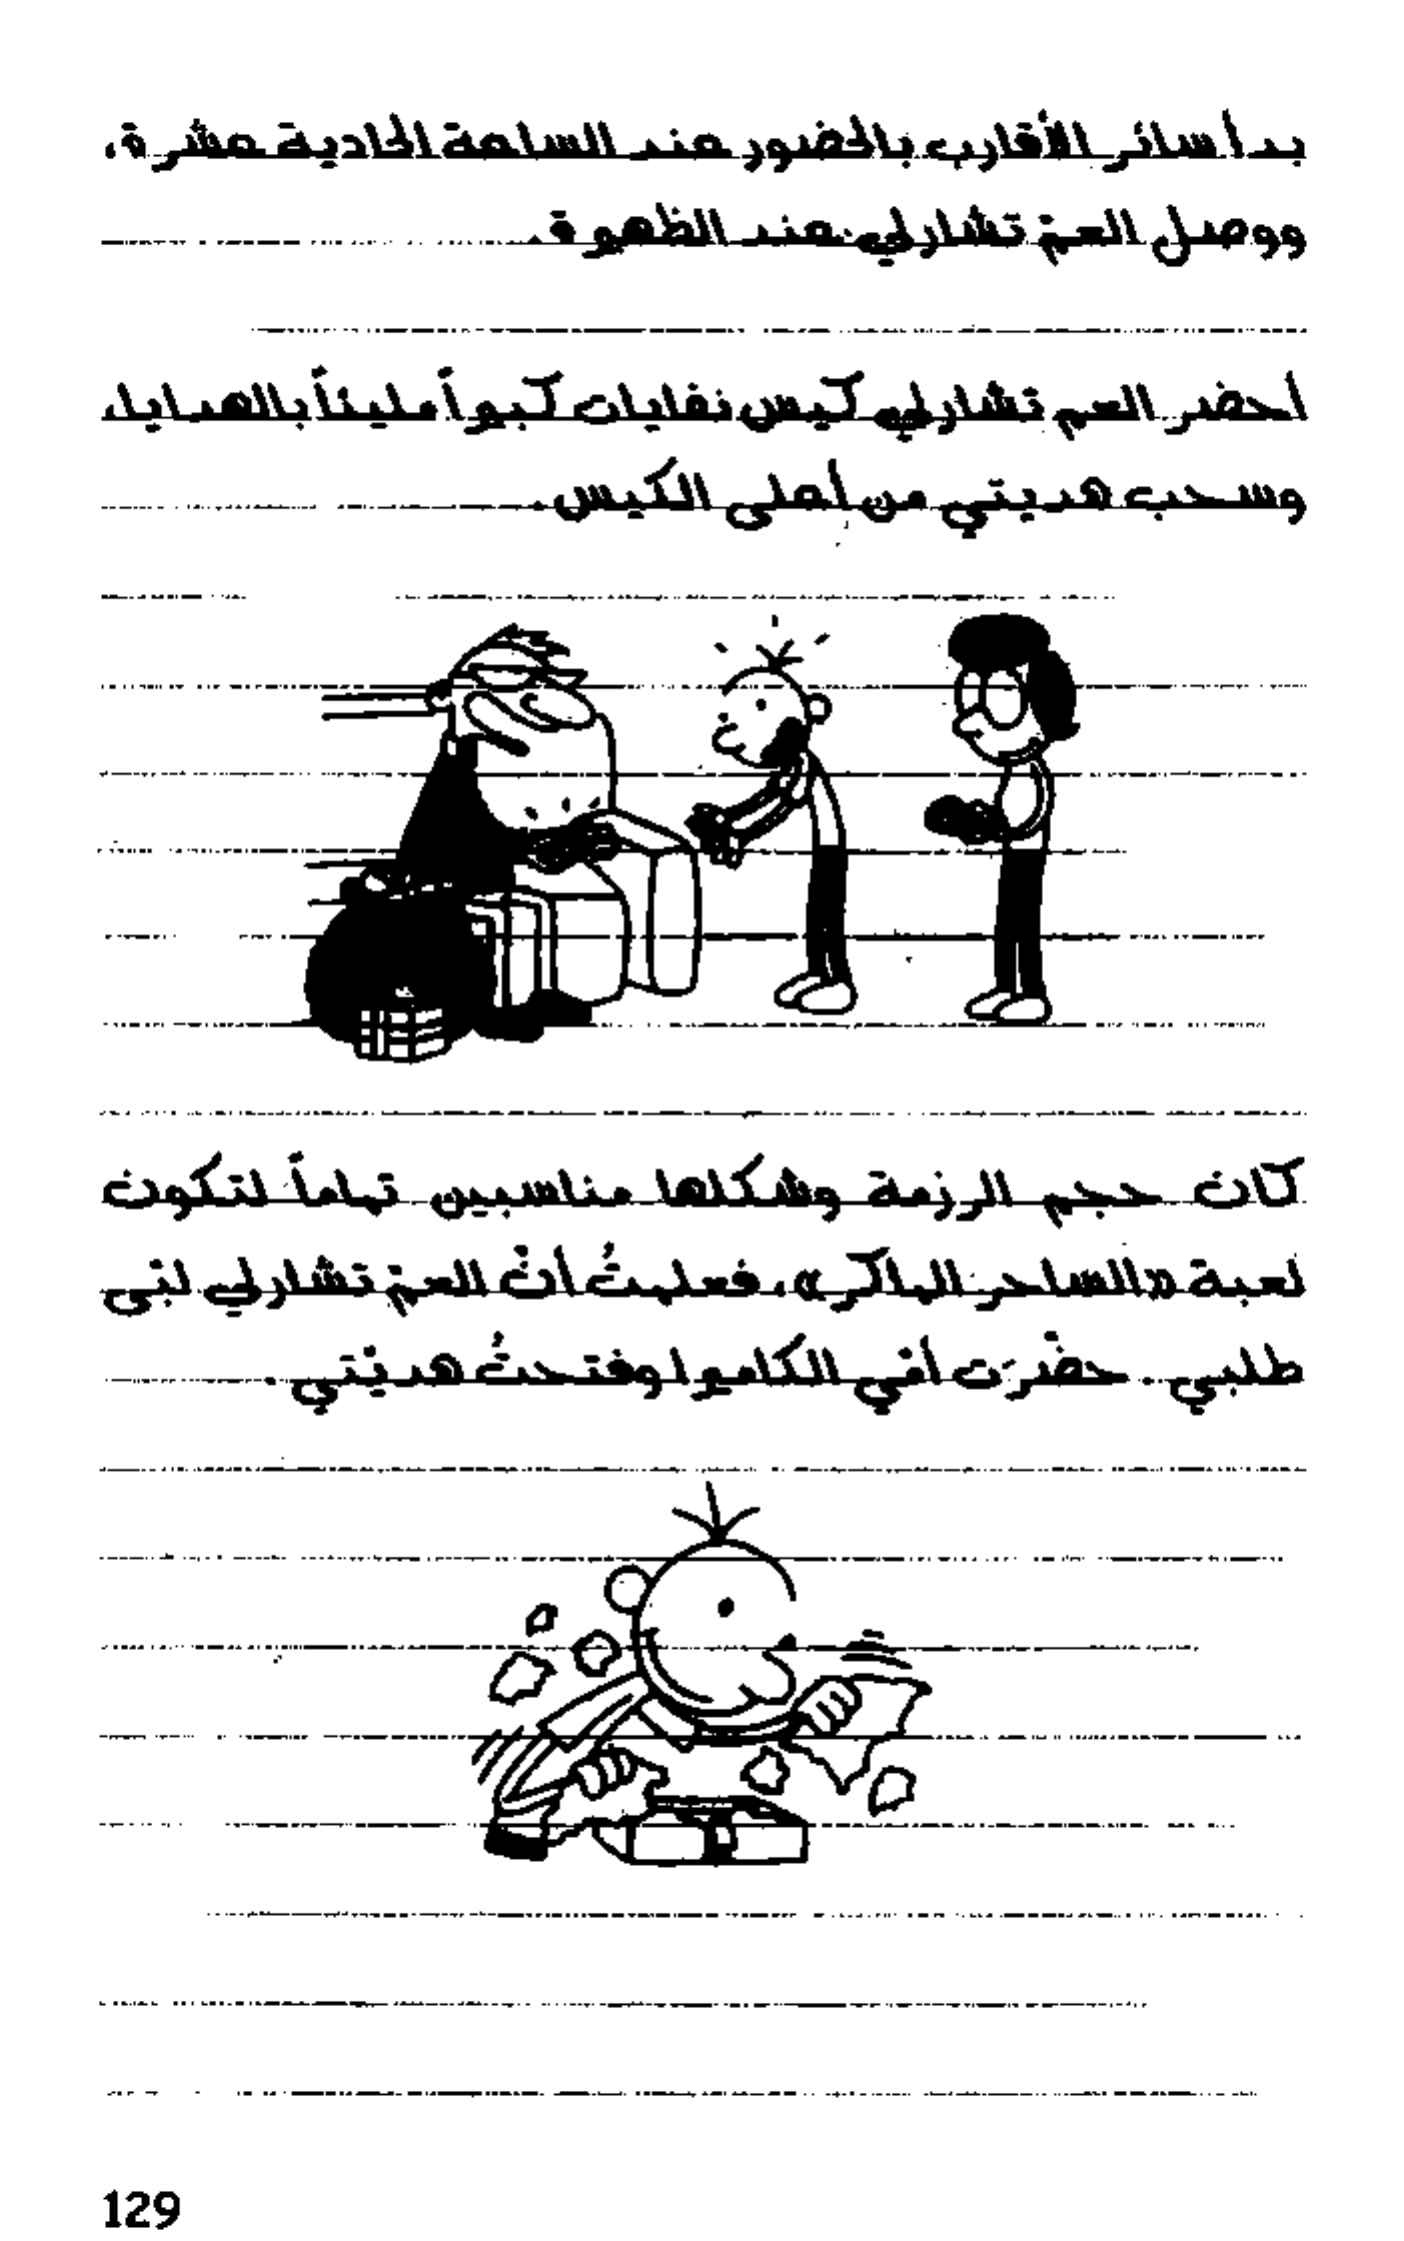 بدأ سائر الأقارب بالحضور عند الساعة الحادية عشرة،
ووصل العمّ تشارلي عند الظهيرة.
أحضر العم تشارلي كيس نفايات كبيراً مليئاً بالهدايا،
وسحب هديتي من أعلى الكيس.
كان حجم الرزمة وشكلها مناسبين تماماً لتكون
لعبة «الساحر الماكر»، فعلمتُ أنّ العمّ تشارلي لبّى
طلبي. حضّرَت أمّي الكاميرا وفتحتُ هديّتي.
129